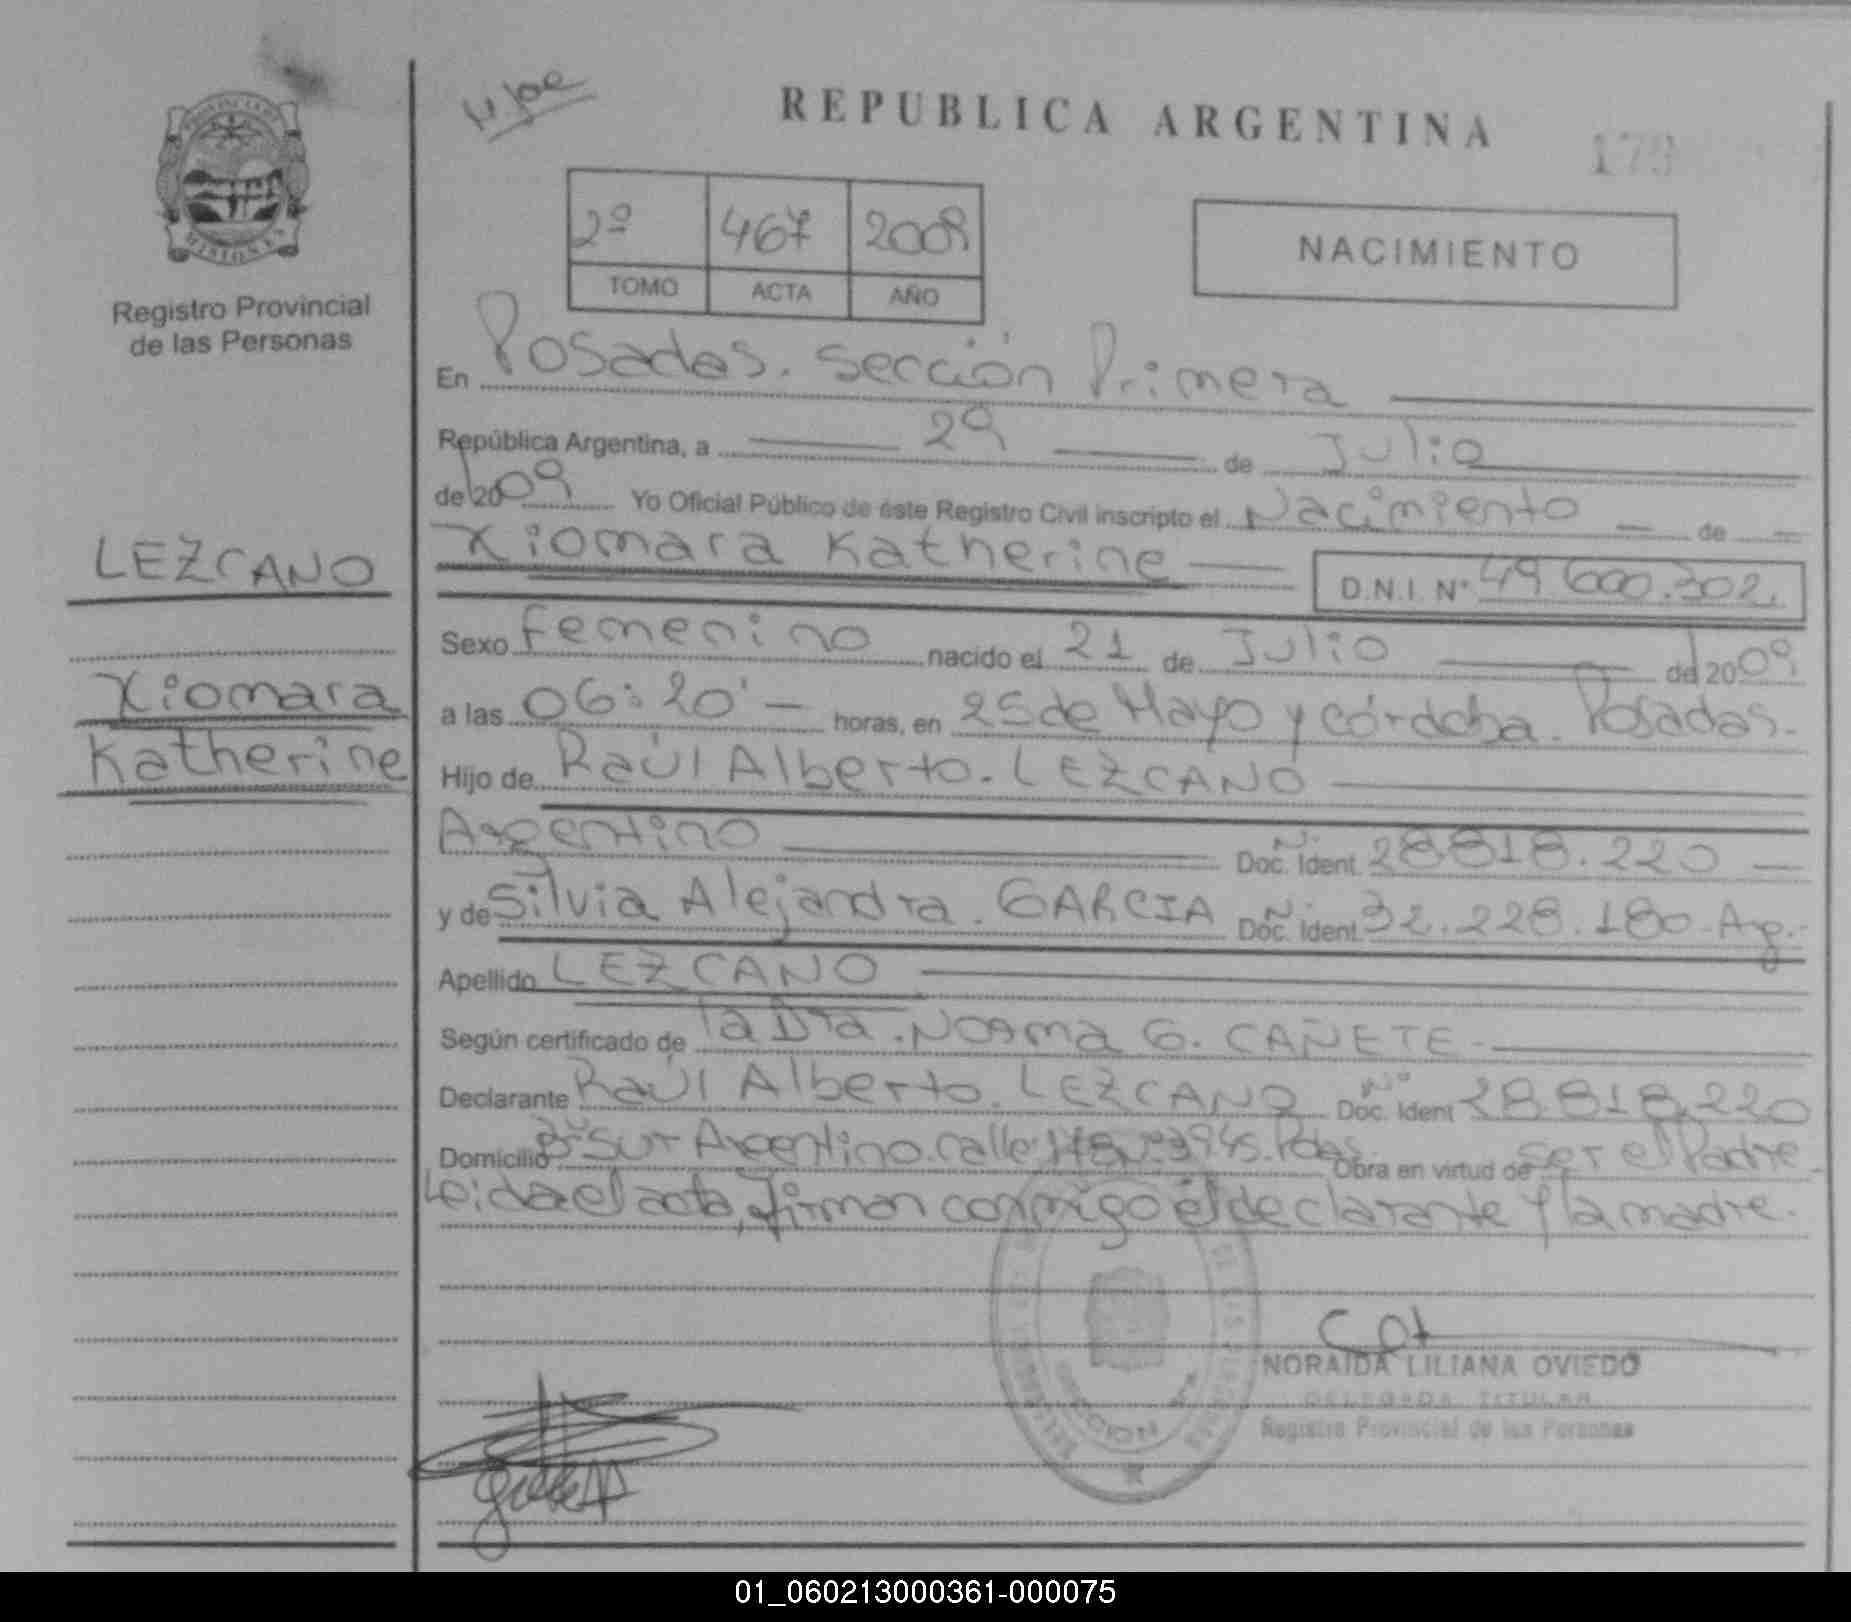 REPUBLICA ARGENTINA
173
2º 467 2009
TOMO ACTA AÑO
NACIMIENTO
PROVINCIA DE
MISIONES
Registro Provincial
de las Personas
LEZCANO
Xiomara
Katherine
En Posadas. Sección Primera
República Argentina, a 29 de Julio
de 2009 Yo Oficial Público de éste Registro Civil inscripto el Nacimiento de
Xiomara Katherine D.N.I. Nº 49.600.302.
Sexo Femenino nacido el 21 de Julio de 2009
a las 06:20' horas, en 25 de Mayo y córdoba. Posadas.
Hijo de Raúl Alberto. LEZCANO
Argentino Doc. Ident. Nº 28.818.220
y de Silvia Alejandra. GARCIA Doc. Ident. Nº 32.228.180. Arg.
Apellido LEZCANO
Según certificado de la Dra. Norma G. CAÑETE.
Declarante Raúl Alberto. LEZCANO Doc. Ident Nº 28.818.220
Domicilio Bº Sur Argentino. calle 3945. Pdas. Obra en virtud de ser el Padre.
Leida el acta, firman conmigo el declarante y la madre.
NORAIDA LILIANA OVIEDO
DELEGADA TITULAR
Registro Provincial de las Personas
01_060213000361-000075